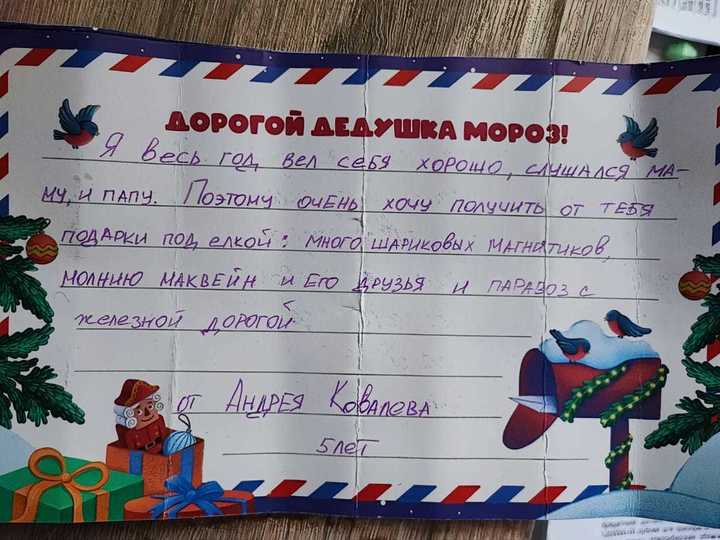 ДОРОГОЙ ДЕДУШКА МОРОЗ!
Я весь год вел себя хорошо, слушался ма-
му, и папу. Поэтому очень хочу получить от тебя
подарки под елкой: много шариковых магнитиков,
молнию маквейн и его друзья и паравоз с
железной дорогой.
от Андрея Ковалева
5 лет